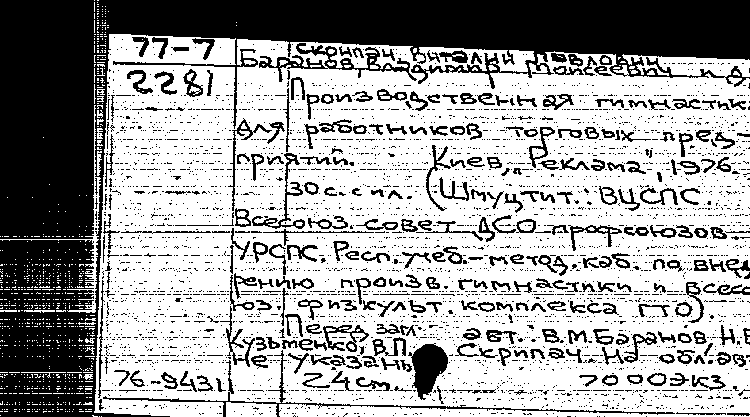 77-7 Скрипач, Виталий Павлович
2281 Баранов, Владимир Моисеевич и д
Производственная гимнастик
для работников торговых пред-
приятий. Киев, „Реклама", 1976.
30 с. с ил. (Шмуцтит.: ВЦСПС.
Всесоюз. совет ДСО профсоюзов.
УРСПС. Респ. учеб.-метод. каб. по внед
рению произв. гимнастики и всесо
юз. физкульт. комплекса ГТО).
Перед загл. авт.: В.М. Баранов, Н.В
Кузьменко, В.П. Скрипач. На обл. авт
не указаны
76-9431 24 см. 7000 экз.